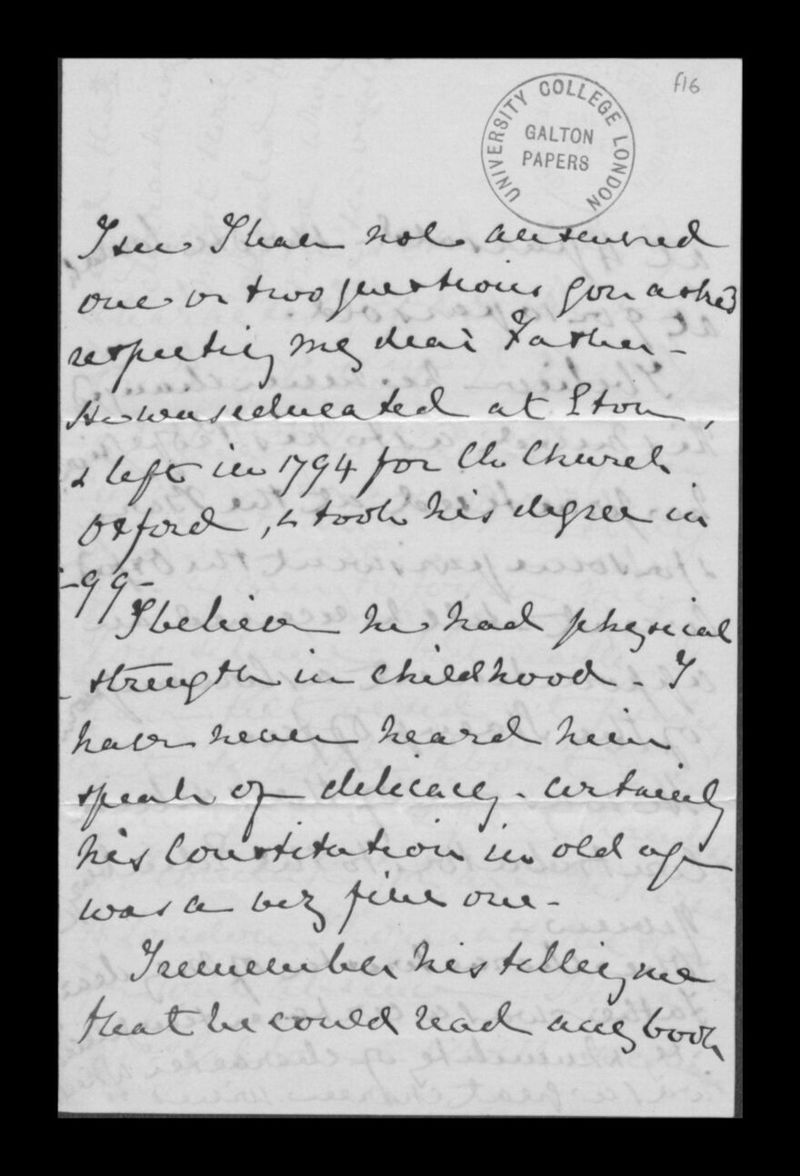 f16
UNIVERSITY COLLEGE LONDON
GALTON
PAPERS
I see I have not answered
one or two questions you asked
respecting my dear Father -
He was educated at Eton,
& left in 1794 for Ch. Church
Oxford, & took his degree in
-99-
I believe he had physical
strength in childhood - I
have never heard him
speak of delicacy - certainly
his Constitution in old age
was a very fine one -
I remember his telling me
that he could read any book